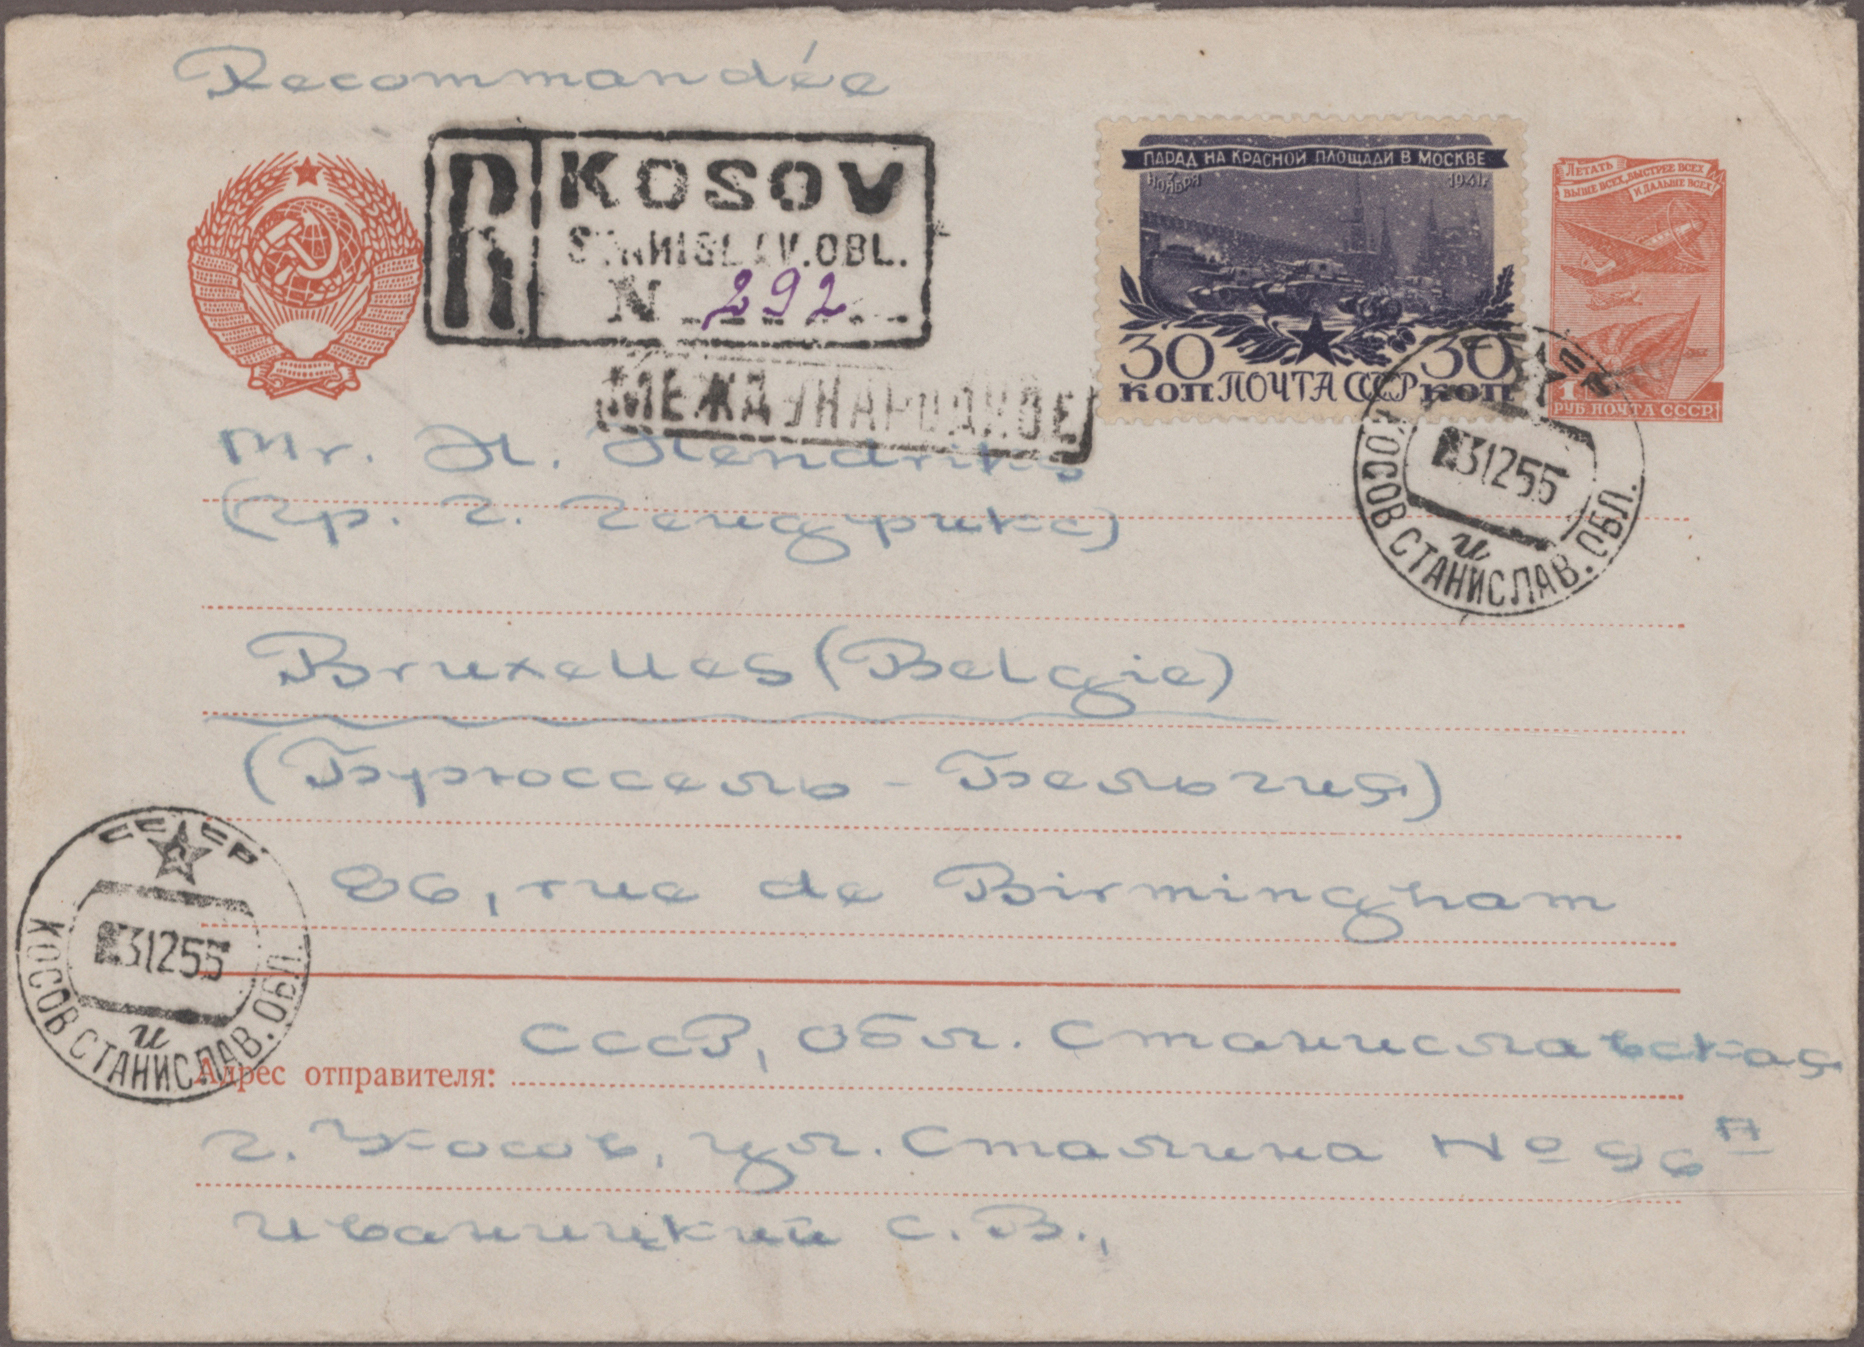 Recommandée
R
KOSOV
STANISLAV.OBL.
N 292
МЕЖДУНАРОДНОЕ
ПАРАД НА КРАСНОЙ ПЛОЩАДИ В МОСКВЕ
7 НОЯБРЯ 1941г.
30 КОП ПОЧТА СССР 30 КОП
ЛЕТАТЬ
ВЫШЕ ВСЕХ, БЫСТРЕЕ ВСЕХ
И ДАЛЬШЕ ВСЕХ!
1
РУБ ПОЧТА СССР
31255
и
КОСОВ СТАНИСЛАВ. ОБЛ.
Mr. H. Hendriks
(гр. Г. Гендрикс)
Bruxelles (Belgie)
(Брюссель - Бельгия)
86, rue de Birmingham
СССР
31255
и
КОСОВ СТАНИСЛАВ. ОБЛ.
Адрес отправителя: СССР, обл. Станиславская
г. Косов, ул. Сталина № 96А
Иваницкий С. В.,